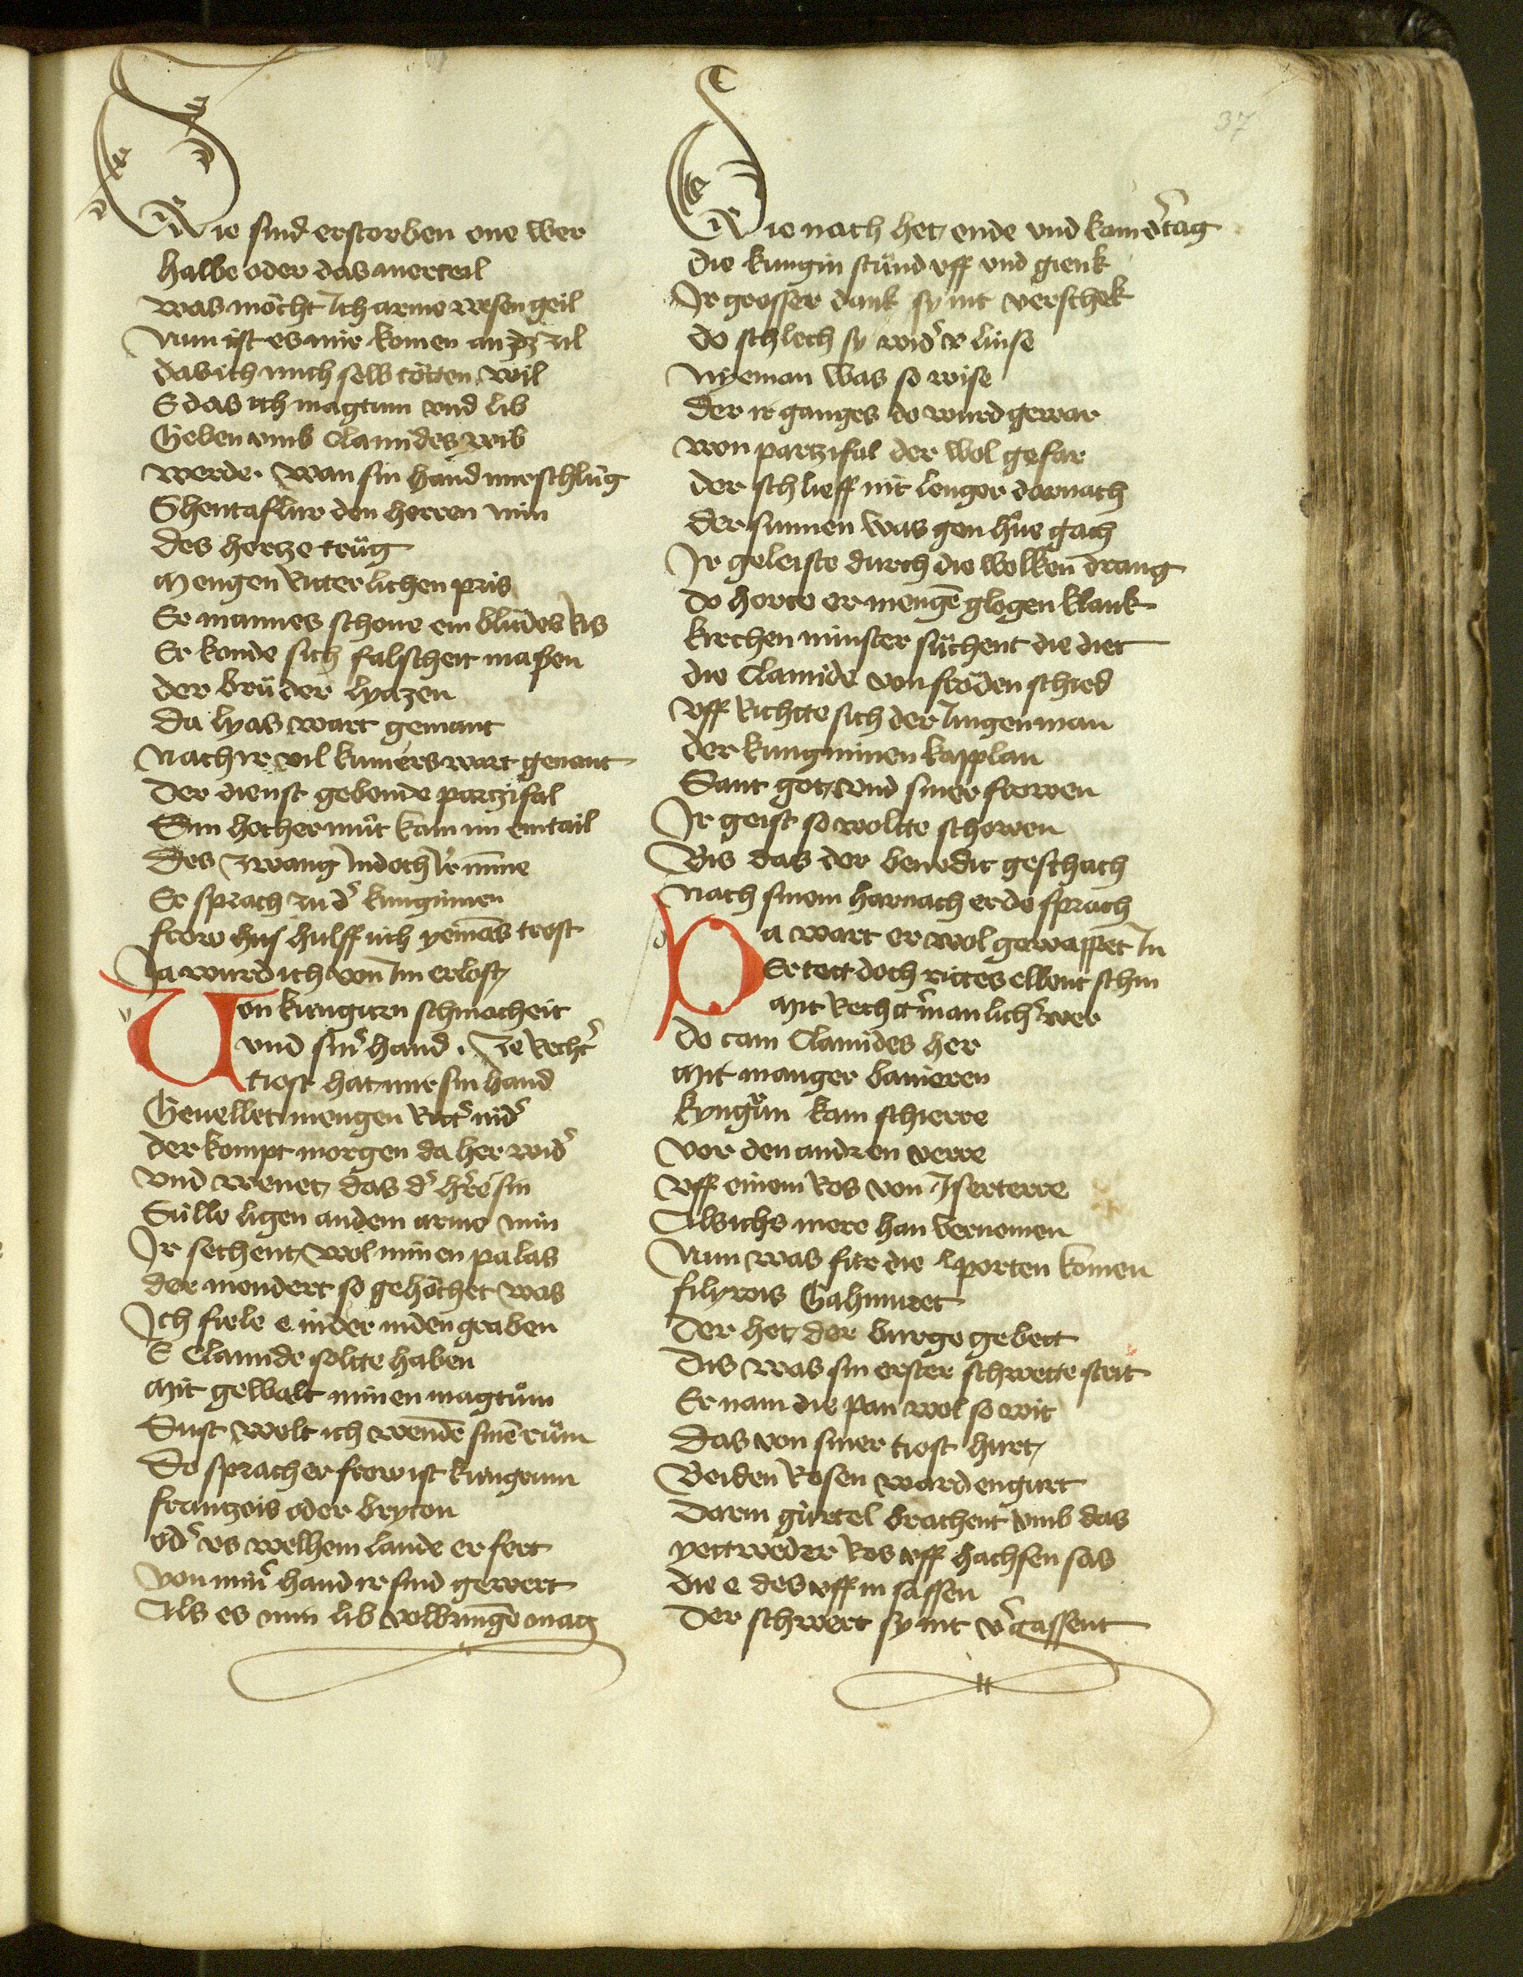 37
Die sind erstorben one wer
halbe oder das merteil
was möcht Ich arme wesen geil
Nun ist es mir komen an dz zil
das ich mich selb tötten wil
E das ich magtum vnd lib
Geben vmb Clamides wib
werde. wan sin hand mir schlůg
Shentaflur den herren min
des hertze trůg
Mengen Ritterlichen pris
Er mannes schone ein blůdes ris
Er konde sich falscheit maßen
der brůder lyazen
Da lyas wart genant
Nach ir vil kumers wart genant
Der dienst gebende partzifal
Sin hocher můt kam im ein tail
Des zwang In doch Ir mine
Er sprach zu d' kunginnen
frow hus hulff uch yemās trost
Ja wurd ich von Im erlost
Von kingrun schmacheit
vnd sin' hand. Je Recht'
tiost hat mir sin hand
Geuellet mengen Ritt' nid'
der kompt morgen da her wid'
vnd wenet das d' h're sin
Sülle ligen an dem arme min
Ir sechent wol minen palas
der niendert so gehöchet was
Ich fiele e in der in den graben
E Clamide soltte haben
Mit gewalt minen magtům
Sust wolt ich wenden sinē rům
Do sprach er frow ist kingrun
frantzois oder bryton
od' vs welhem lande er fert
von min' hand ir sind gewert
Als es min lib volbringē mag
Die nach het ende vnd kam d' tag
die kungin stůnd vff vnd gienk
Ir grosser dank sy nit verschek
do schlech sy wid' v linse
Nyeman was so wise
der ir ganges do wurd gewar
won partzifal der wol gefar
der schlieff nit lenger dornach
der sunnen was gen höe gach
Ir geleiste durch die wolken drang
do horte er mengē glogen klank
kirchen minster sůchent die diet
die Clamide von fröden schied
vff Richtte sich der Iungen man
der kunginnen kapplan
Sant got vnd siner frowen
Ir geist so woltte schowen
Bis das der benedit geschach
Nach sinem harnach er do sprach
Da wart er wol gewappet In
Er tett doch rittes ellent schin
Mit Recht' manlich' wer
do cam Clamides her
Mit manger banieren
kyngrůn kam schierre
vor den andren verre
vff einem Ros von Iserterre
Als ichs mere han vernomen
Nun was fur die porten komen
filyrois Gahmuret
Der het der burge gebett
Dis was sin erster schwette streit
Er nam die pan wol so wit
Das von siner tiost hurt
Beiden Rosen ward engurt
Darm gürtel brachent vmb das
yettweder Ros vff hachsen sas
die e des vff in sassen
Der schwert sy nit v'gassent